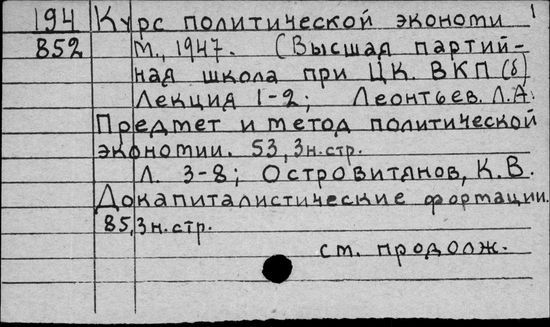 194 Курс политической экономи 1
852 М., 1947. (Высшая партий-
ная школа при ЦК. ВКП(б)
Лекция 1-2; Леонтьев. Л.А.
Предмет и метод политической
экономии. 53, 3н.стр.
Л. 3-8; Островитянов, К.В.
Докапиталистические фортации.
85, 3н.стр.
см. продолж.